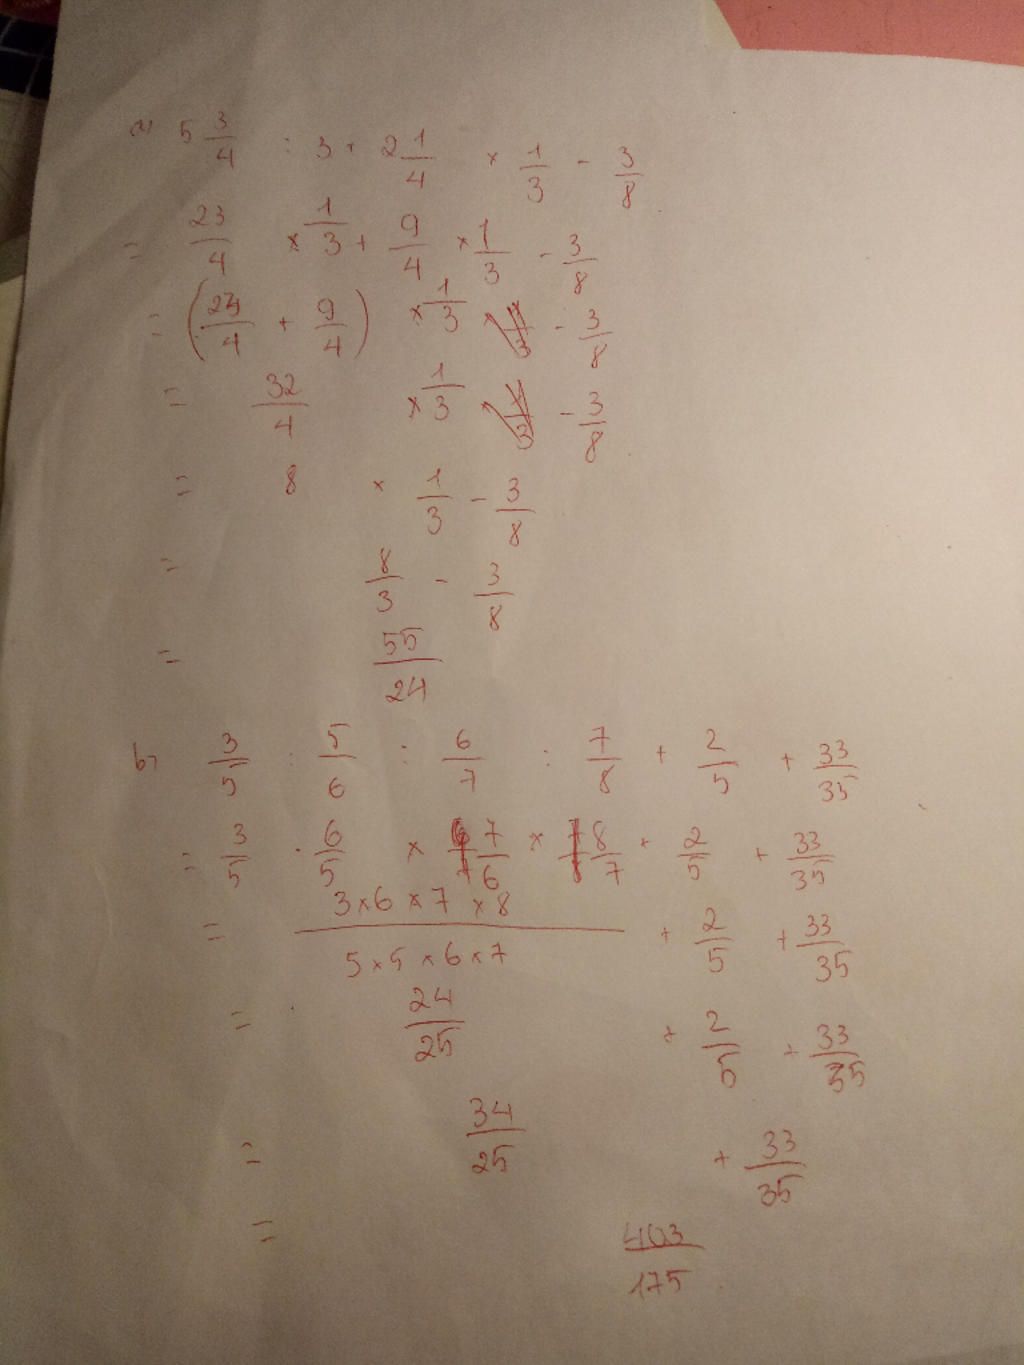 a) 5 3/4 : 3 + 2 1/4 × 1/3 - 3/8
= 23/4 × 1/3 + 9/4 × 1/3 - 3/8
= (23/4 + 9/4) × 1/3 - 3/8
= 32/4 × 1/3 - 3/8
= 8 × 1/3 - 3/8
= 8/3 - 3/8
= 55/24
b) 3/5 : 5/6 : 6/7 : 7/8 + 2/5 + 33/35
= 3/5 . 6/5 × 7/6 × 8/7 + 2/5 + 33/35
= 3×6×7×8/5×5×6×7 + 2/5 + 33/35
= 24/25 + 2/5 + 33/35
= 34/25 + 33/35
= 403/175